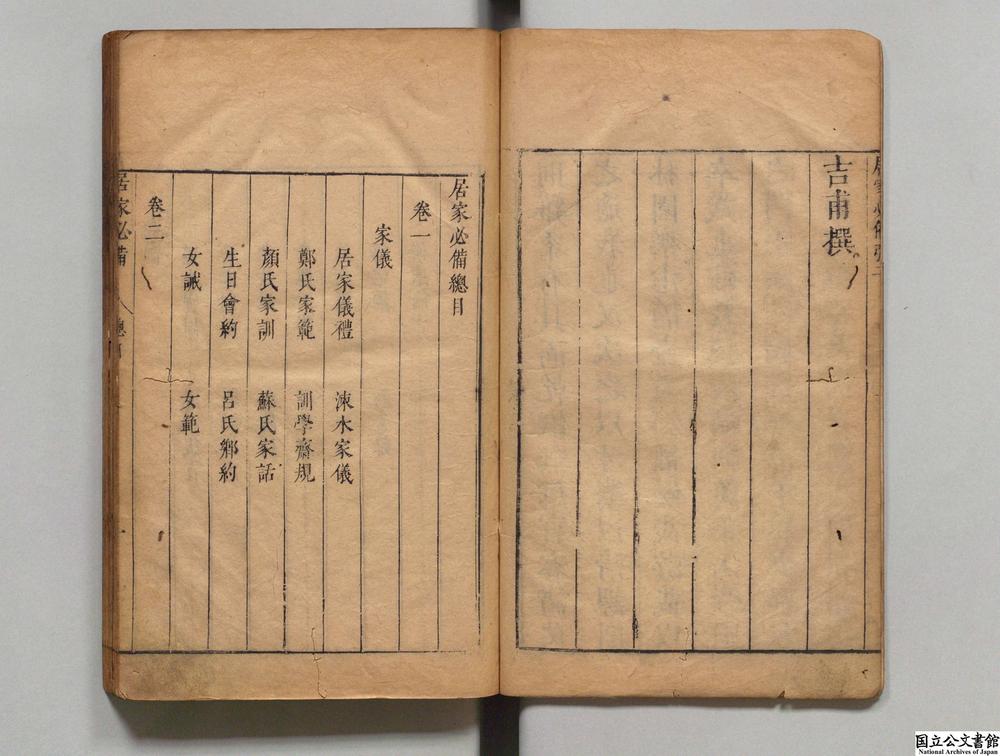 吉甫撰
居家必備總目
卷一
家儀
居家儀禮 涑水家儀
鄭氏家範 訓學齋規
顏氏家訓 蘇氏家話
生日會約 呂氏鄉約
女誡 女範
卷二
居家必備 總目 一
国立公文書館
National Archives of Japan